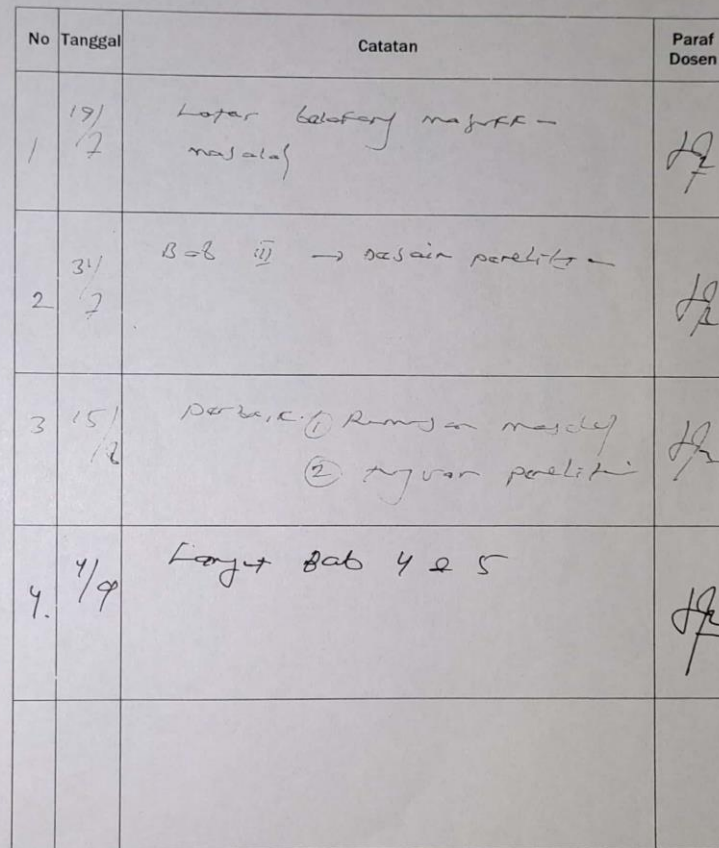 No Tanggal Catatan Paraf Dosen
1 19/7 Latar belakang masukkan
masalah
2 31/7 Bab III → Desain penelitian
3 15/8 Perbaiki ① Rumusan masalah
② tujuan penelitian
4. 4/9 Lanjut Bab 4 & 5